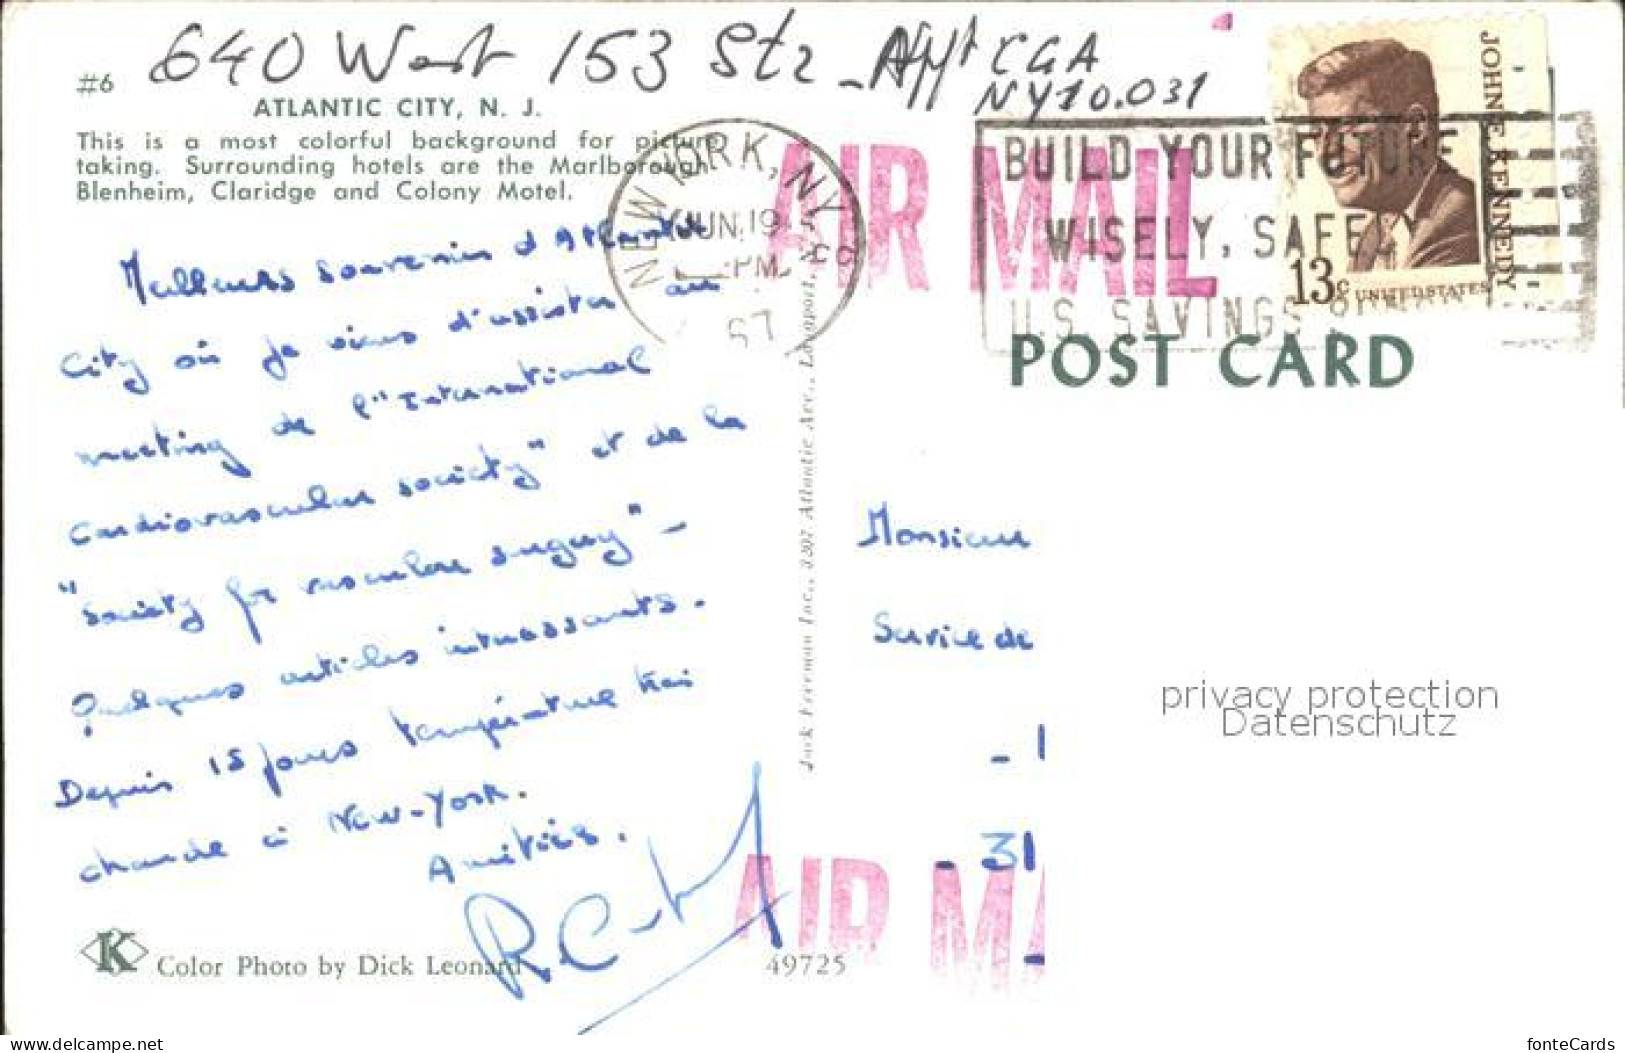 640 West 153 Str - Appt CGA
NY 10.031
#6
ATLANTIC CITY, N. J.
This is a most colorful background for picture
taking. Surrounding hotels are the Marlborough
Blenheim, Claridge and Colony Motel.
Meilleurs souvenirs d'Atlantic
City où je viens d'assister au
meeting de l'"International
Cardiovascular society" et de la
"Society for vascular surgery" -
Quelques articles intéressants.
Depuis 15 jours température très
chaude à New-York.
Amitiés.
K
Color Photo by Dick Leonard
49725
Jack Freeman Inc., 3207 Atlantic Ave., Longport,
NEW YORK, NY
JUN 19
PM
67
AIR MAIL
BUILD YOUR FUTURE
WISELY, SAFELY
U.S. SAVINGS
JOHN F. KENNEDY
13c UNITED STATES
POST CARD
Monsieur
Service de
- 31
AIR MA
privacy protection
Datenschutz
www.delcampe.net
fonteCards